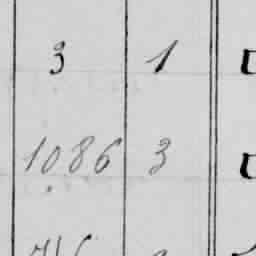 3 1
1086 3